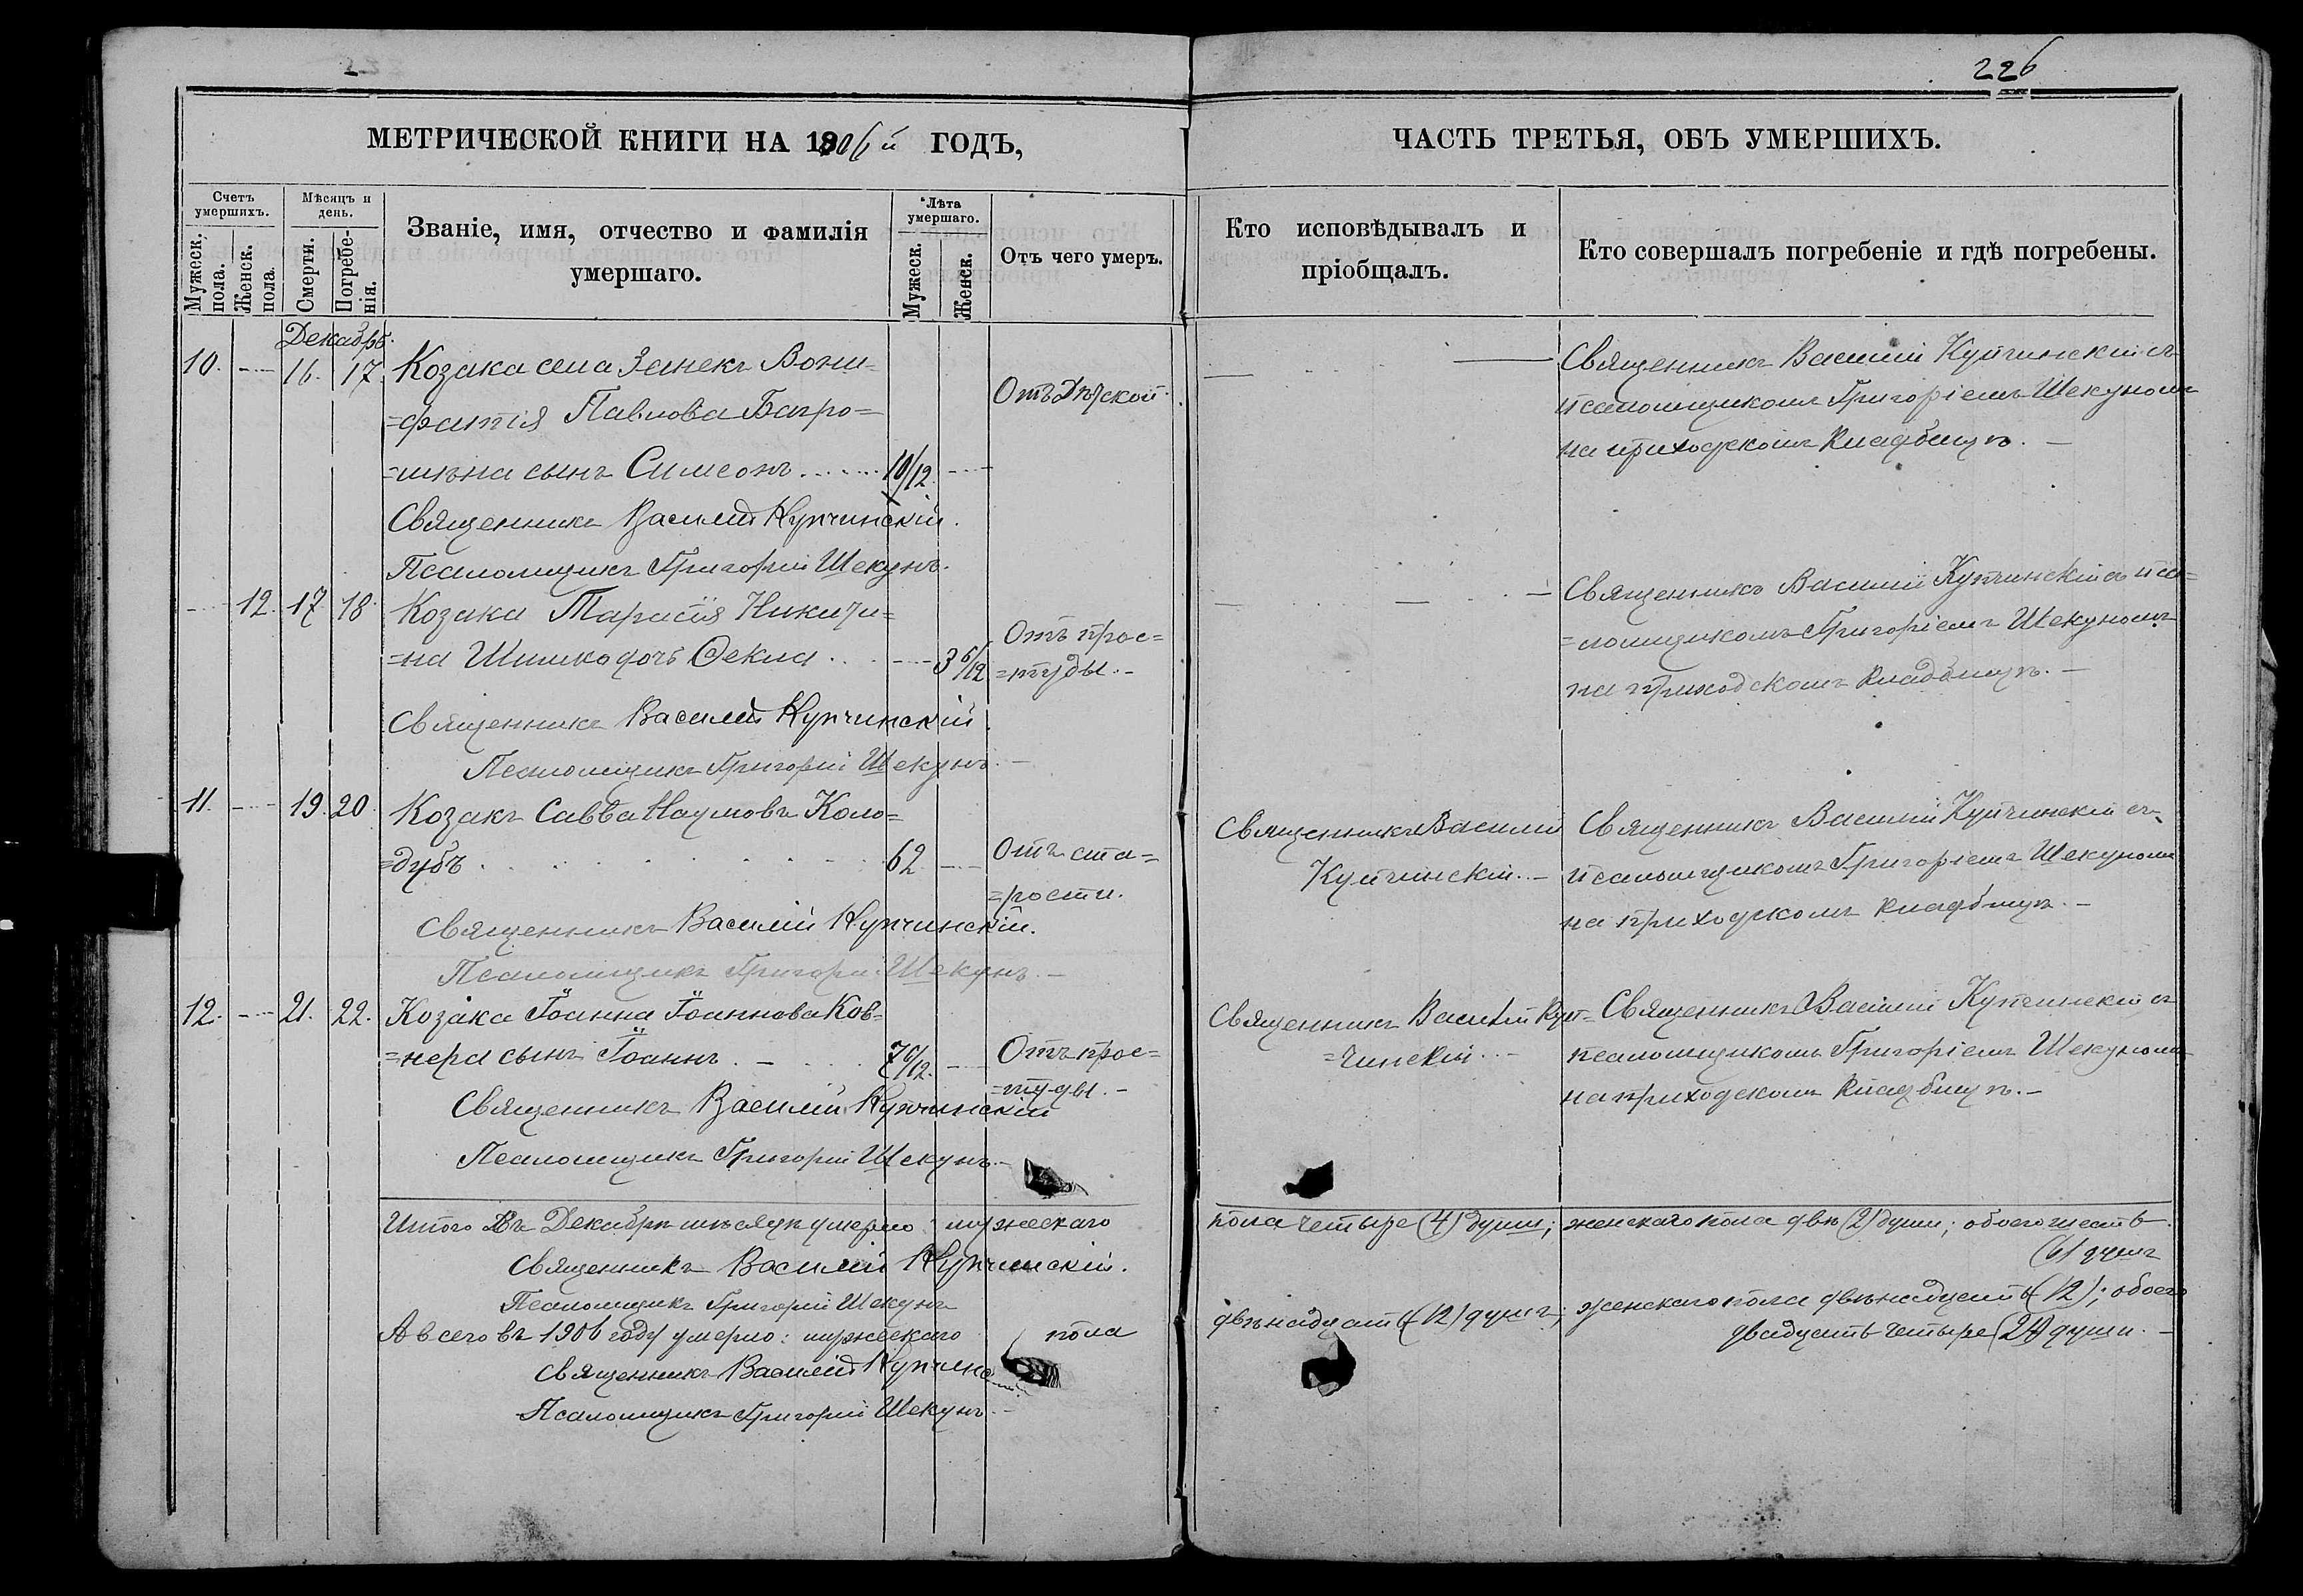 226
МЕТРИЧЕСКОЙ КНИГИ НА 1906й ГОДЪ,
Счетъ умершихъ.
Мужеск. пола.
Женск. пола.
Мѣсяцъ и день.
Смерти.
Погребе-
нія.
Званіе, имя, отчество и фамилія
умершаго.
Лѣта умершаго.
Мужеск.
Женск.
Отъ чего умеръ.
Декабрь.
10. 16. 17. Козака села Зенекъ Вони=
=фантія Павлова Багро=
=
сынъ Симеонъ 10/12
Отъ Дѣтской
Священникъ Василій Купчинскій.
Псаломщикъ Григорій Шекунъ.
12. 17 18 Козака Тарасія Никити=
=на Шишко дочь Ѳекла 3 6/12
Отъ прос=
=туды.-
Священникъ Василій Купчинскій
Псаломщикъ Григорій Шекунъ.-
11. 19. 20. Козакъ Савва Наумовъ Коло=
=дубъ 62
Отъ ста=
=рости.
Священникъ Василій Купчинскій.
Псаломщикъ Григорій Шекунъ.-
12. 21. 22. Козака Іоанна Іоаннова Ков=
=нера сынъ Іоаннъ
Отъ прос=
=туды.-
Священникъ Василій Купчинскій
Псаломщикъ Григорій Шекунъ.-
Итого Въ Декабрѣ мѣсяцѣ умерло мужескаго
Священникъ Василій Купчинскій.
Псаломщикъ Григорій Шекунъ
А всего въ 1906 году умерло: мужескаго пола
Священникъ Василій Купчинскій
Псаломщикъ Григорій Шекунъ.-
ЧАСТЬ ТРЕТЬЯ, ОБЪ УМЕРШИХЪ.
Кто исповѣдывалъ и
пріобщалъ.
Кто совершалъ погребеніе и гдѣ погребены.
Священникъ Василій Купчинскій съ
псаломщикомъ Григоріемъ Шекуномъ
на приходскомъ кладбищѣ.-
Священникъ Василій Купчинскій съ пса=
=ломщикомъ Григоріемъ Шекуномъ
на приходскомъ кладбищѣ.-
Священникъ Василій
Купчинскій.-
Священникъ Василій Купчинскій съ
псаломщикомъ Григоріемъ Шекуномъ
на приходскомъ кладбищѣ.-
Священникъ Василій Куп=
=чинскій.-
Священникъ Василій Купчинскій съ
псаломщикомъ Григоріемъ Шекуномъ
на приходскомъ кладбищѣ.-
пола четыре (4) души; женскаго пола двѣ (2) души; обоего шесть
(6) душъ
двѣнадцать (12) душъ; женскаго пола двѣнадцать (12); обоего
двадцать четыре (24) души.-